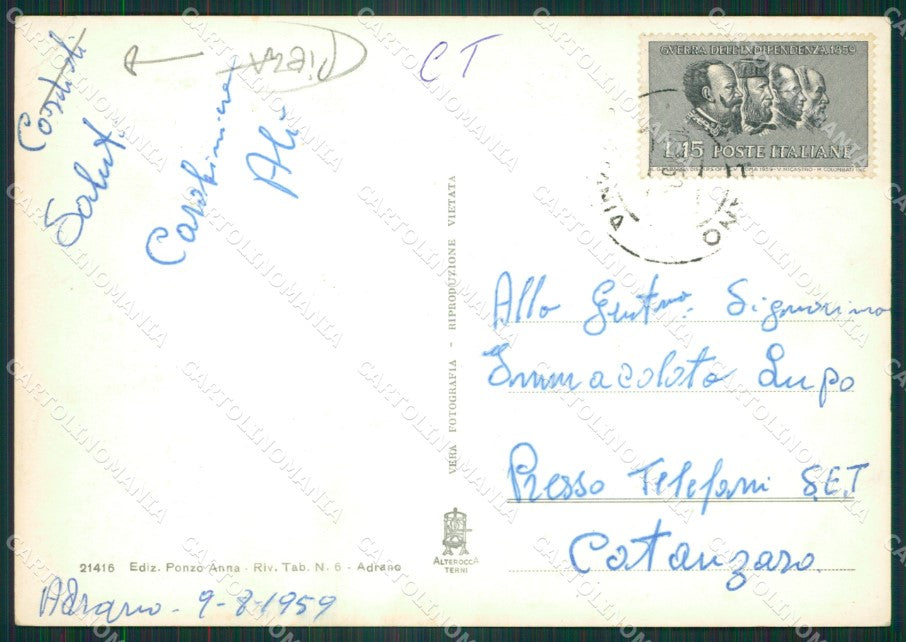 Cordiali
Saluti
Carofiniera
Alì
Pieza
CT
GUERRA DELL'INDIPENDENZA 1859
L.15 POSTE ITALIANE
VERA FOTOGRAFIA - RIPRODUZIONE VIETATA
Alla Gent.ma Signorina
Immacolata Lupo
Presso Telefoni S.E.T
Catanzaro.
ALTEROCCA
TERNI
21416 Ediz. Ponzo Anna - Riv. Tab. N. 6 - Adrano
Adrano - 9-8-1959
CARTOLINOMANIA